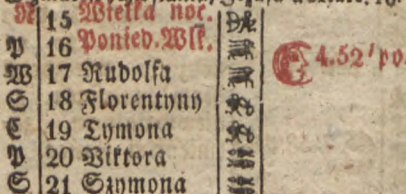 N 15 Wielka noc.
P 16 Ponied. Wlk. 4.52' po.
W 17 Rudolfa
S 18 Florentyny
C 19 Tymona
P 20 Viktora
S 21 Szymona